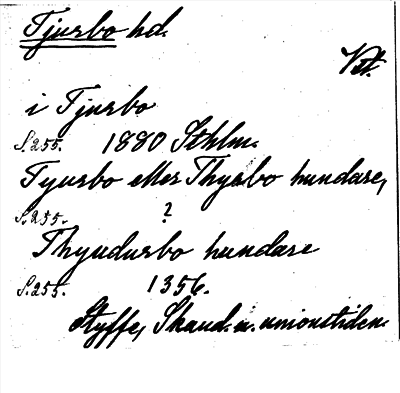 Tjurbo hd.
Vstl.
i Tjurbo
S.255. 1880 Sthlm.
Tyurbo eller Thyrbo hundare,
S.255. ?
Thyudurbo hundare
S.255. 1356.
Styffe, Skand. u. unionstiden.